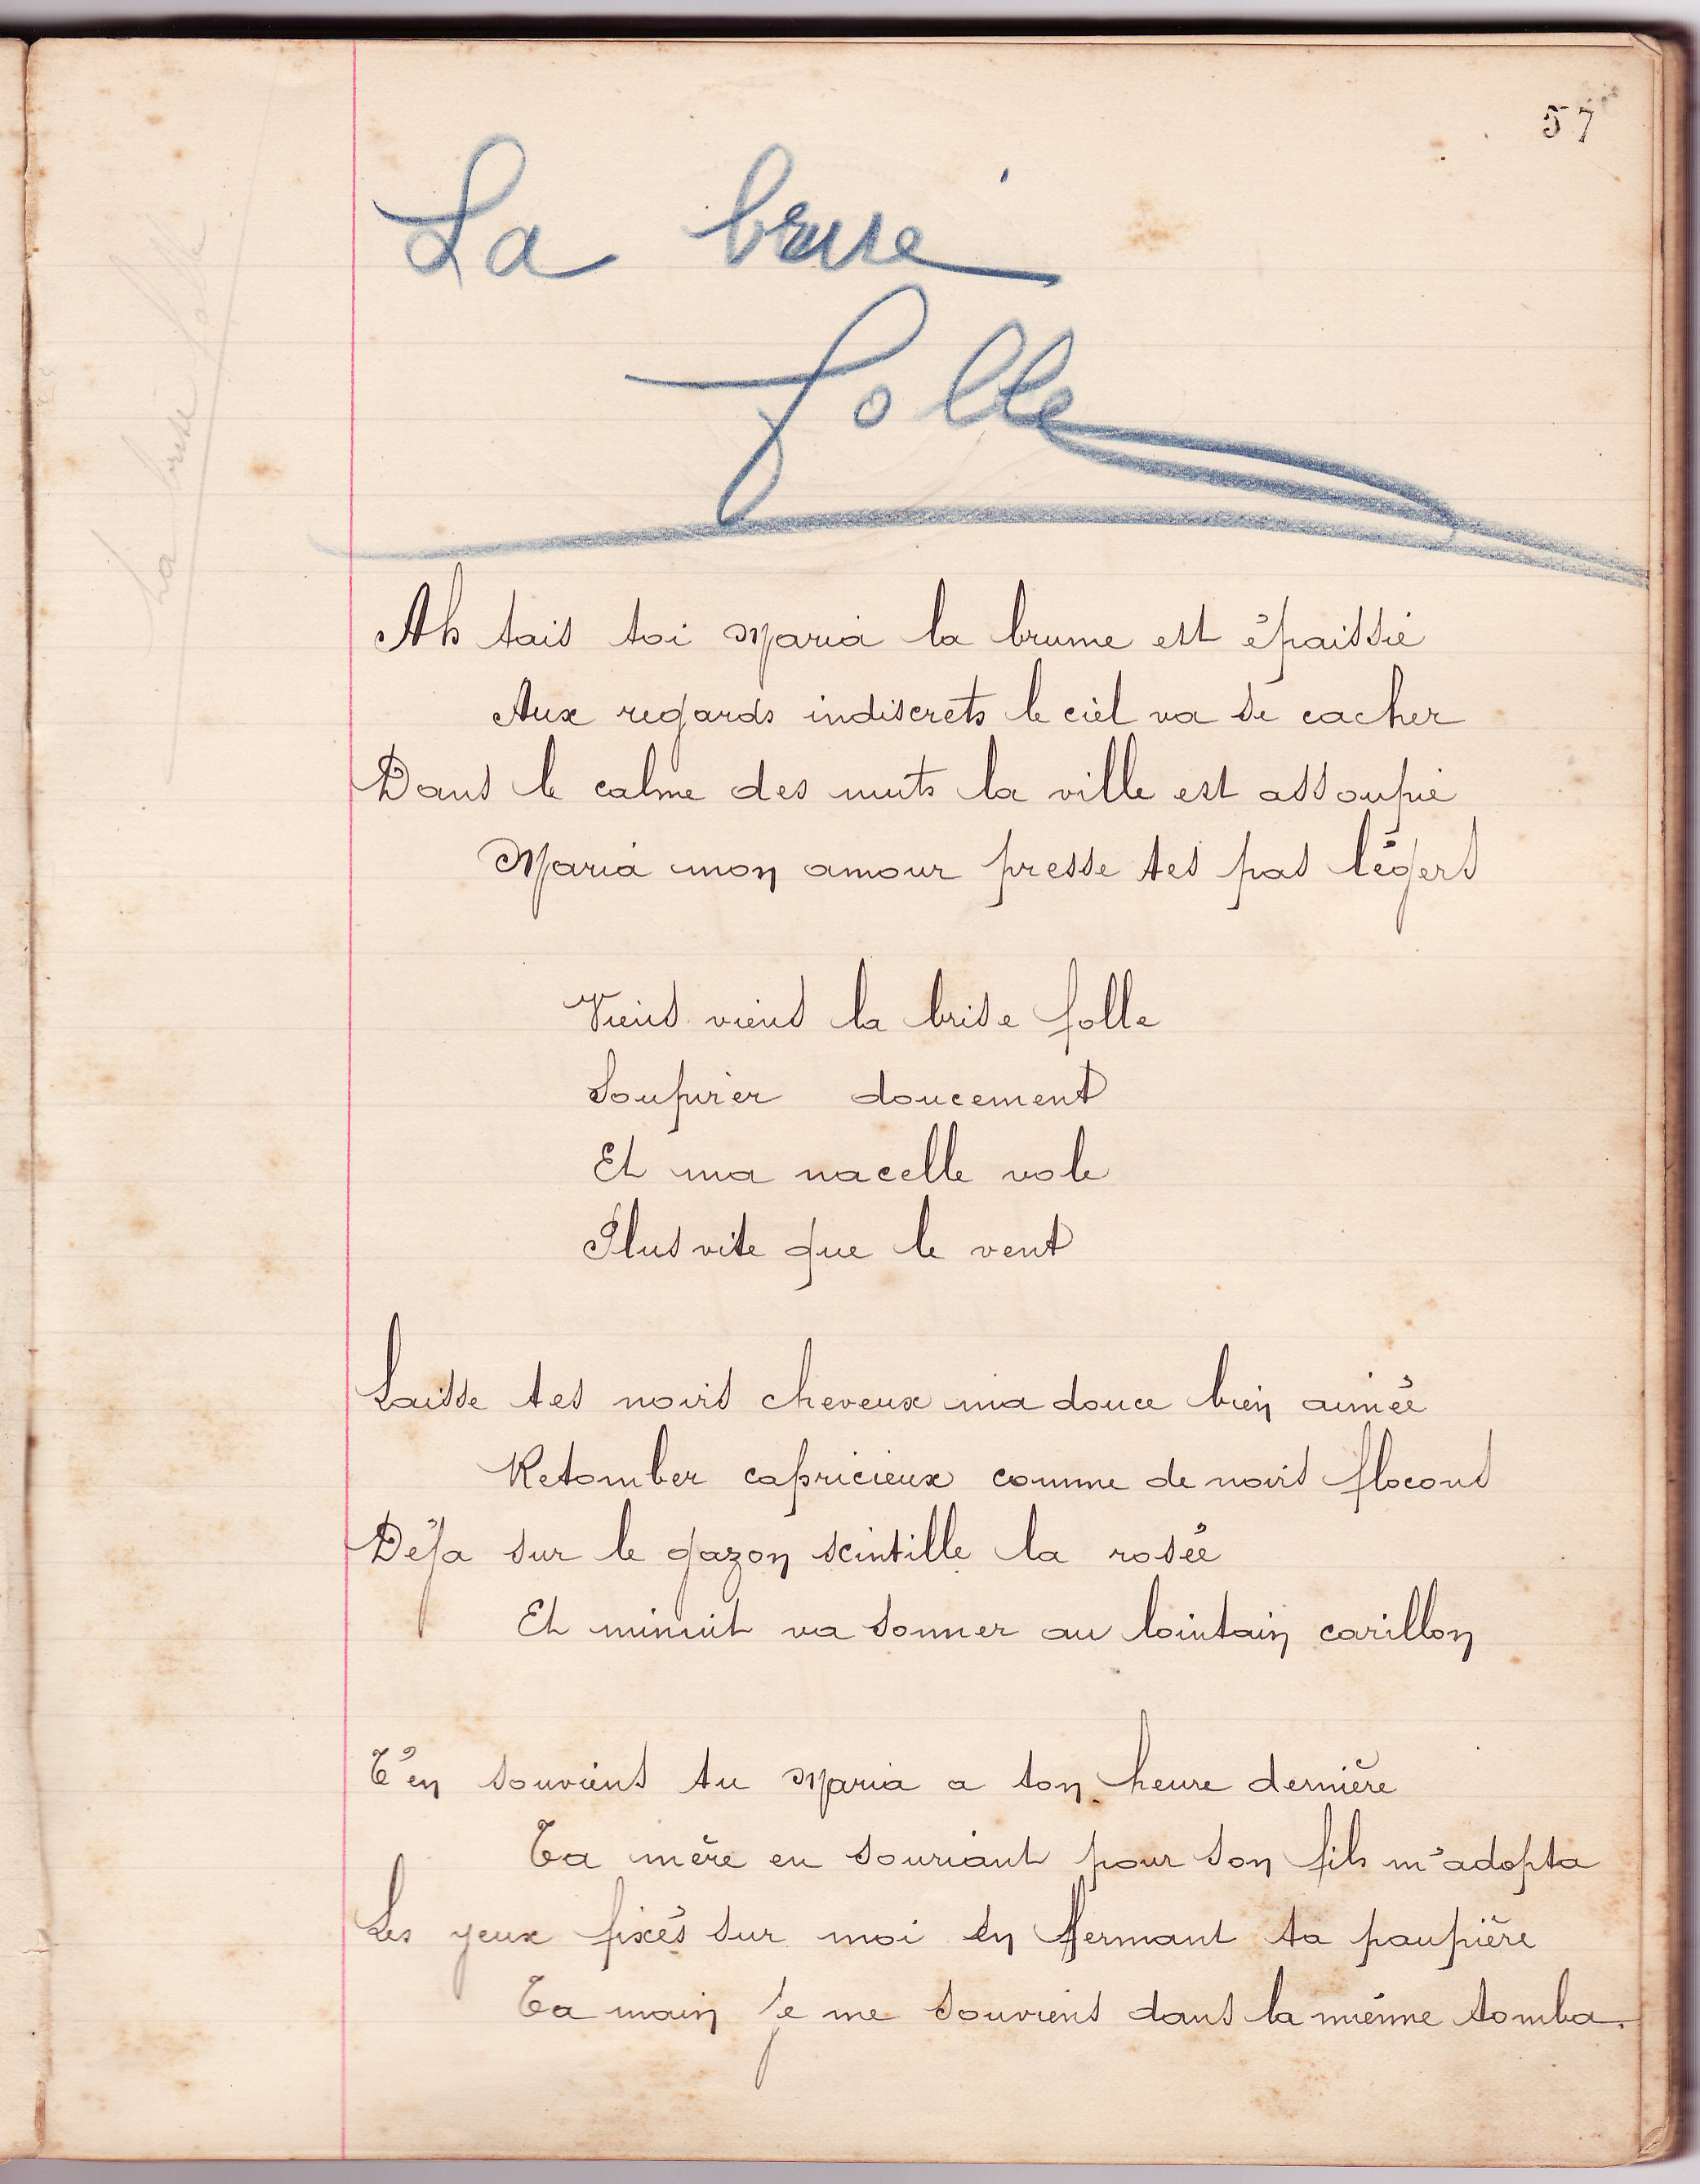 57
La brise
folle
La brise folle
Ah tais toi Maria la brume est épaissie
Aux regards indiscrets le ciel va se cacher
Dans le calme des nuits la ville est assoupie
Maria mon amour presse tes pas légers
Viens viens la brise folle
Soupirer doucement
Et ma nacelle vole
Plus vite que le vent
Laisse tes noirs cheveux ma douce bien aimée
Retomber capricieux comme de noirs flocons
Déja sur le gazon scintille la rosée
Et minuit va sonner au lointain carillon
T'en souviens tu Maria a ton heure dernière
Ta mère en souriant pour son fils m'adopta
Les yeux fixés sur moi en fermant ta paupière
Ta main je me souviens dans la mienne tomba.